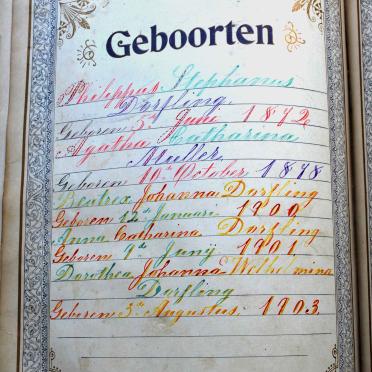 Geboorten
Philippus Stephanus
Dorfling
Geboren 5de Juni 1872
Agatha Catharina
Muller
Geboren 10de October 1878
Beatrex Johanna Dorfling
Geboren 12de Januari 1900
Anna Catharina Dorfling
Geboren 1de Junij 1901
Dorothea Johanna Welhelmina
Dorfling
Geboren 3de Augustus 1903